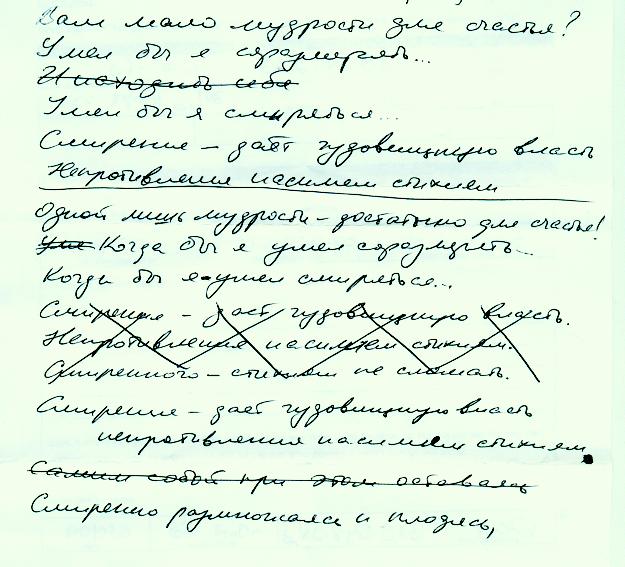 Вам мало мудрости для счастья?
Умел бы я соразмерять...
И исходить себя
Умел бы я смиряться...
Смирение – даёт чудовищную власть
Непротивления насилием стихиям
Одной лишь мудрости – достаточно для счастья!
Уме Когда бы я умел соразмерять...
Когда бы я умел смиряться...
Смирение – даёт чудовищную власть.
Непротивления насилием стихиям.
Смиренного – стихиям не сломать.
Смирение – даёт чудовищную власть
непротивления насилием стихиям.
Самим собой при этом оставаясь
Смиренно размножаясь и плодясь,